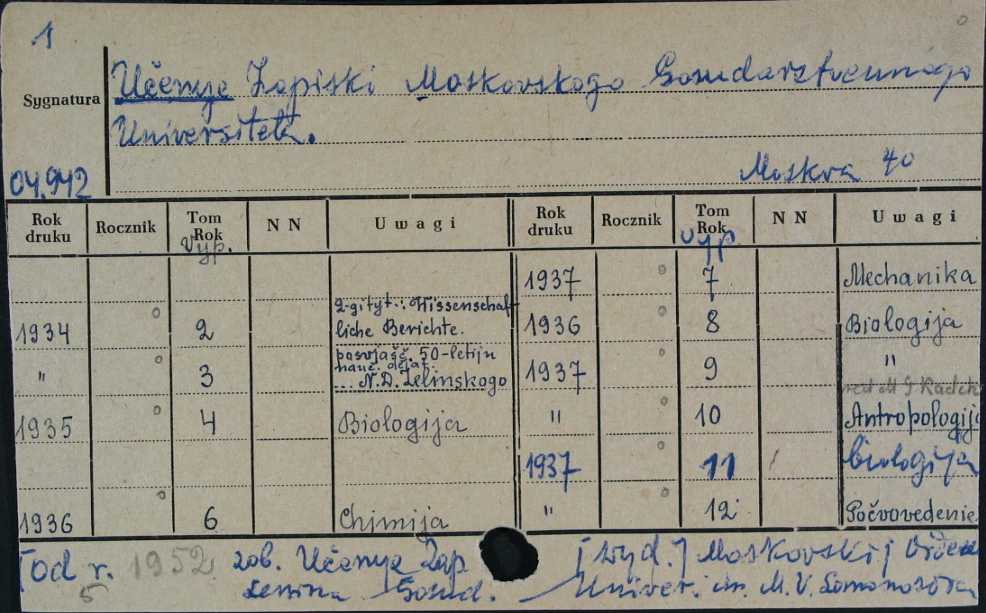 1
Sygnatura
Učenye Zapiski Moskovskogo Gosudarstvennogo
Universiteta.
04.942
Moskva 4o
Rok druku Rocznik Tom Rok Vyp. N N Uwagi Rok druku Rocznik Tom Rok Vyp N N Uwagi
1937 7 Mechanika
1934 2 2-gi tyt.: Wissenschaft-
liche Berichte. 1936 8 Biologija
" 3 posvjašč. 50-letiju
nauč. dejat.
... N. D. Zelinskogo 1937 9 "
1935 4 Biologija " 10 Antropologija
1937 11 biologija
1936 6 Chimija " 12 Počvovedenie
[od r. 1952 zob. Učenye Zap [wyd.] Moskovskij Orden
5 Lenina Gosud. Univer. im. M. V. Lomonosova